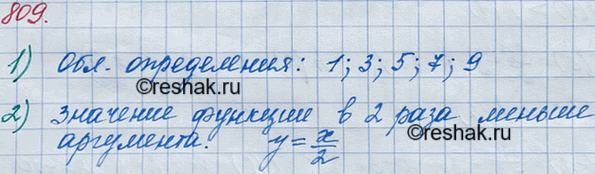 809.
1) Обл. определения: 1; 3; 5; 7; 9
©reshak.ru
2) Значение функции в 2 раза меньше
аргумента. y = x/2
©reshak.ru
©reshak.ru